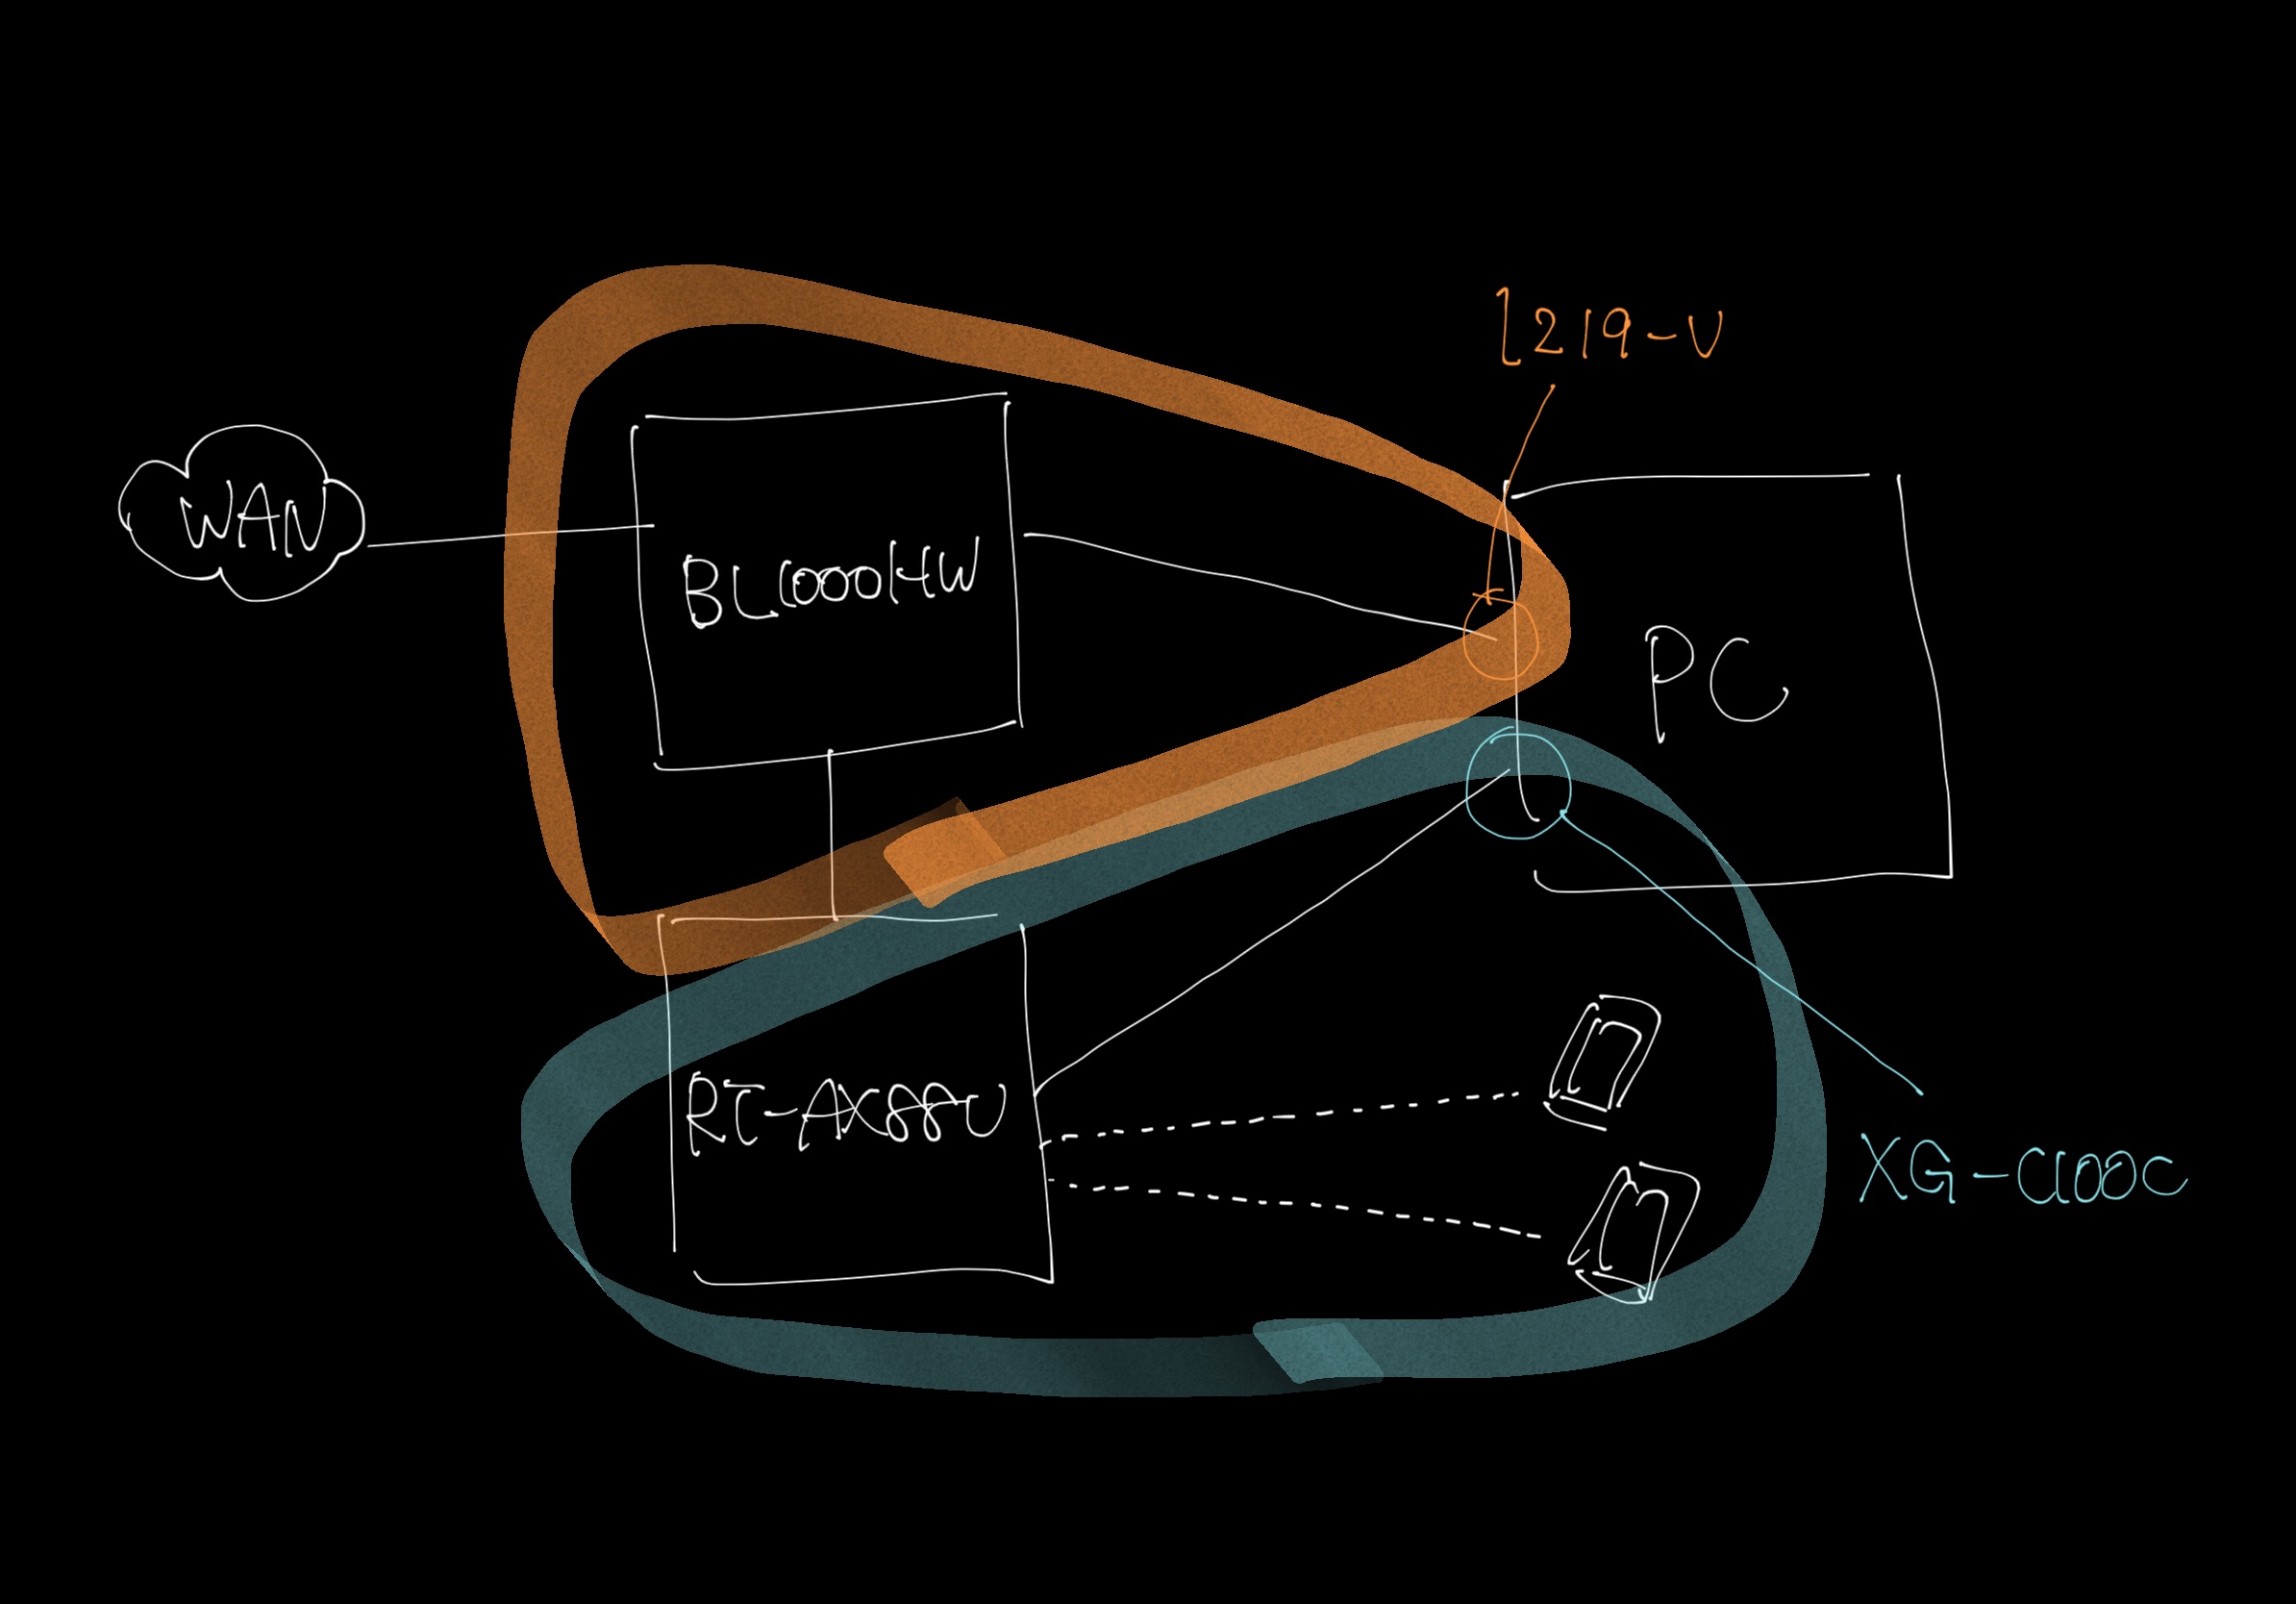 I219-V
WAN
BL1000HW
PC
RT-AX88U
XG-C100C